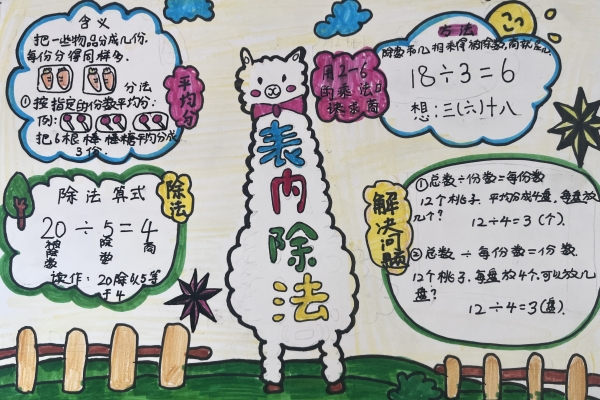 含义
把一些物品分成几份.
每份分得同样多.
分法
①按指定的份数平均分:
例:
把6根棒棒糖平均分成
3份.
平均分
除法算式
20÷5=4
被除数
除数
商
读作:20除以5等
于4
除法
表内除法
用2~6
的乘法口
诀求商
方法
除数和几相乘得被除数,商就是几
18÷3=6
想:三(六)十八
解决问题
①总数÷份数=每份数
12个桃子.平均分成4盘,每盘放
几个?
12÷4=3(个).
②总数÷每份数=份数.
12个桃子.每盘放4个.可以放几
盘?
12÷4=3(盘).